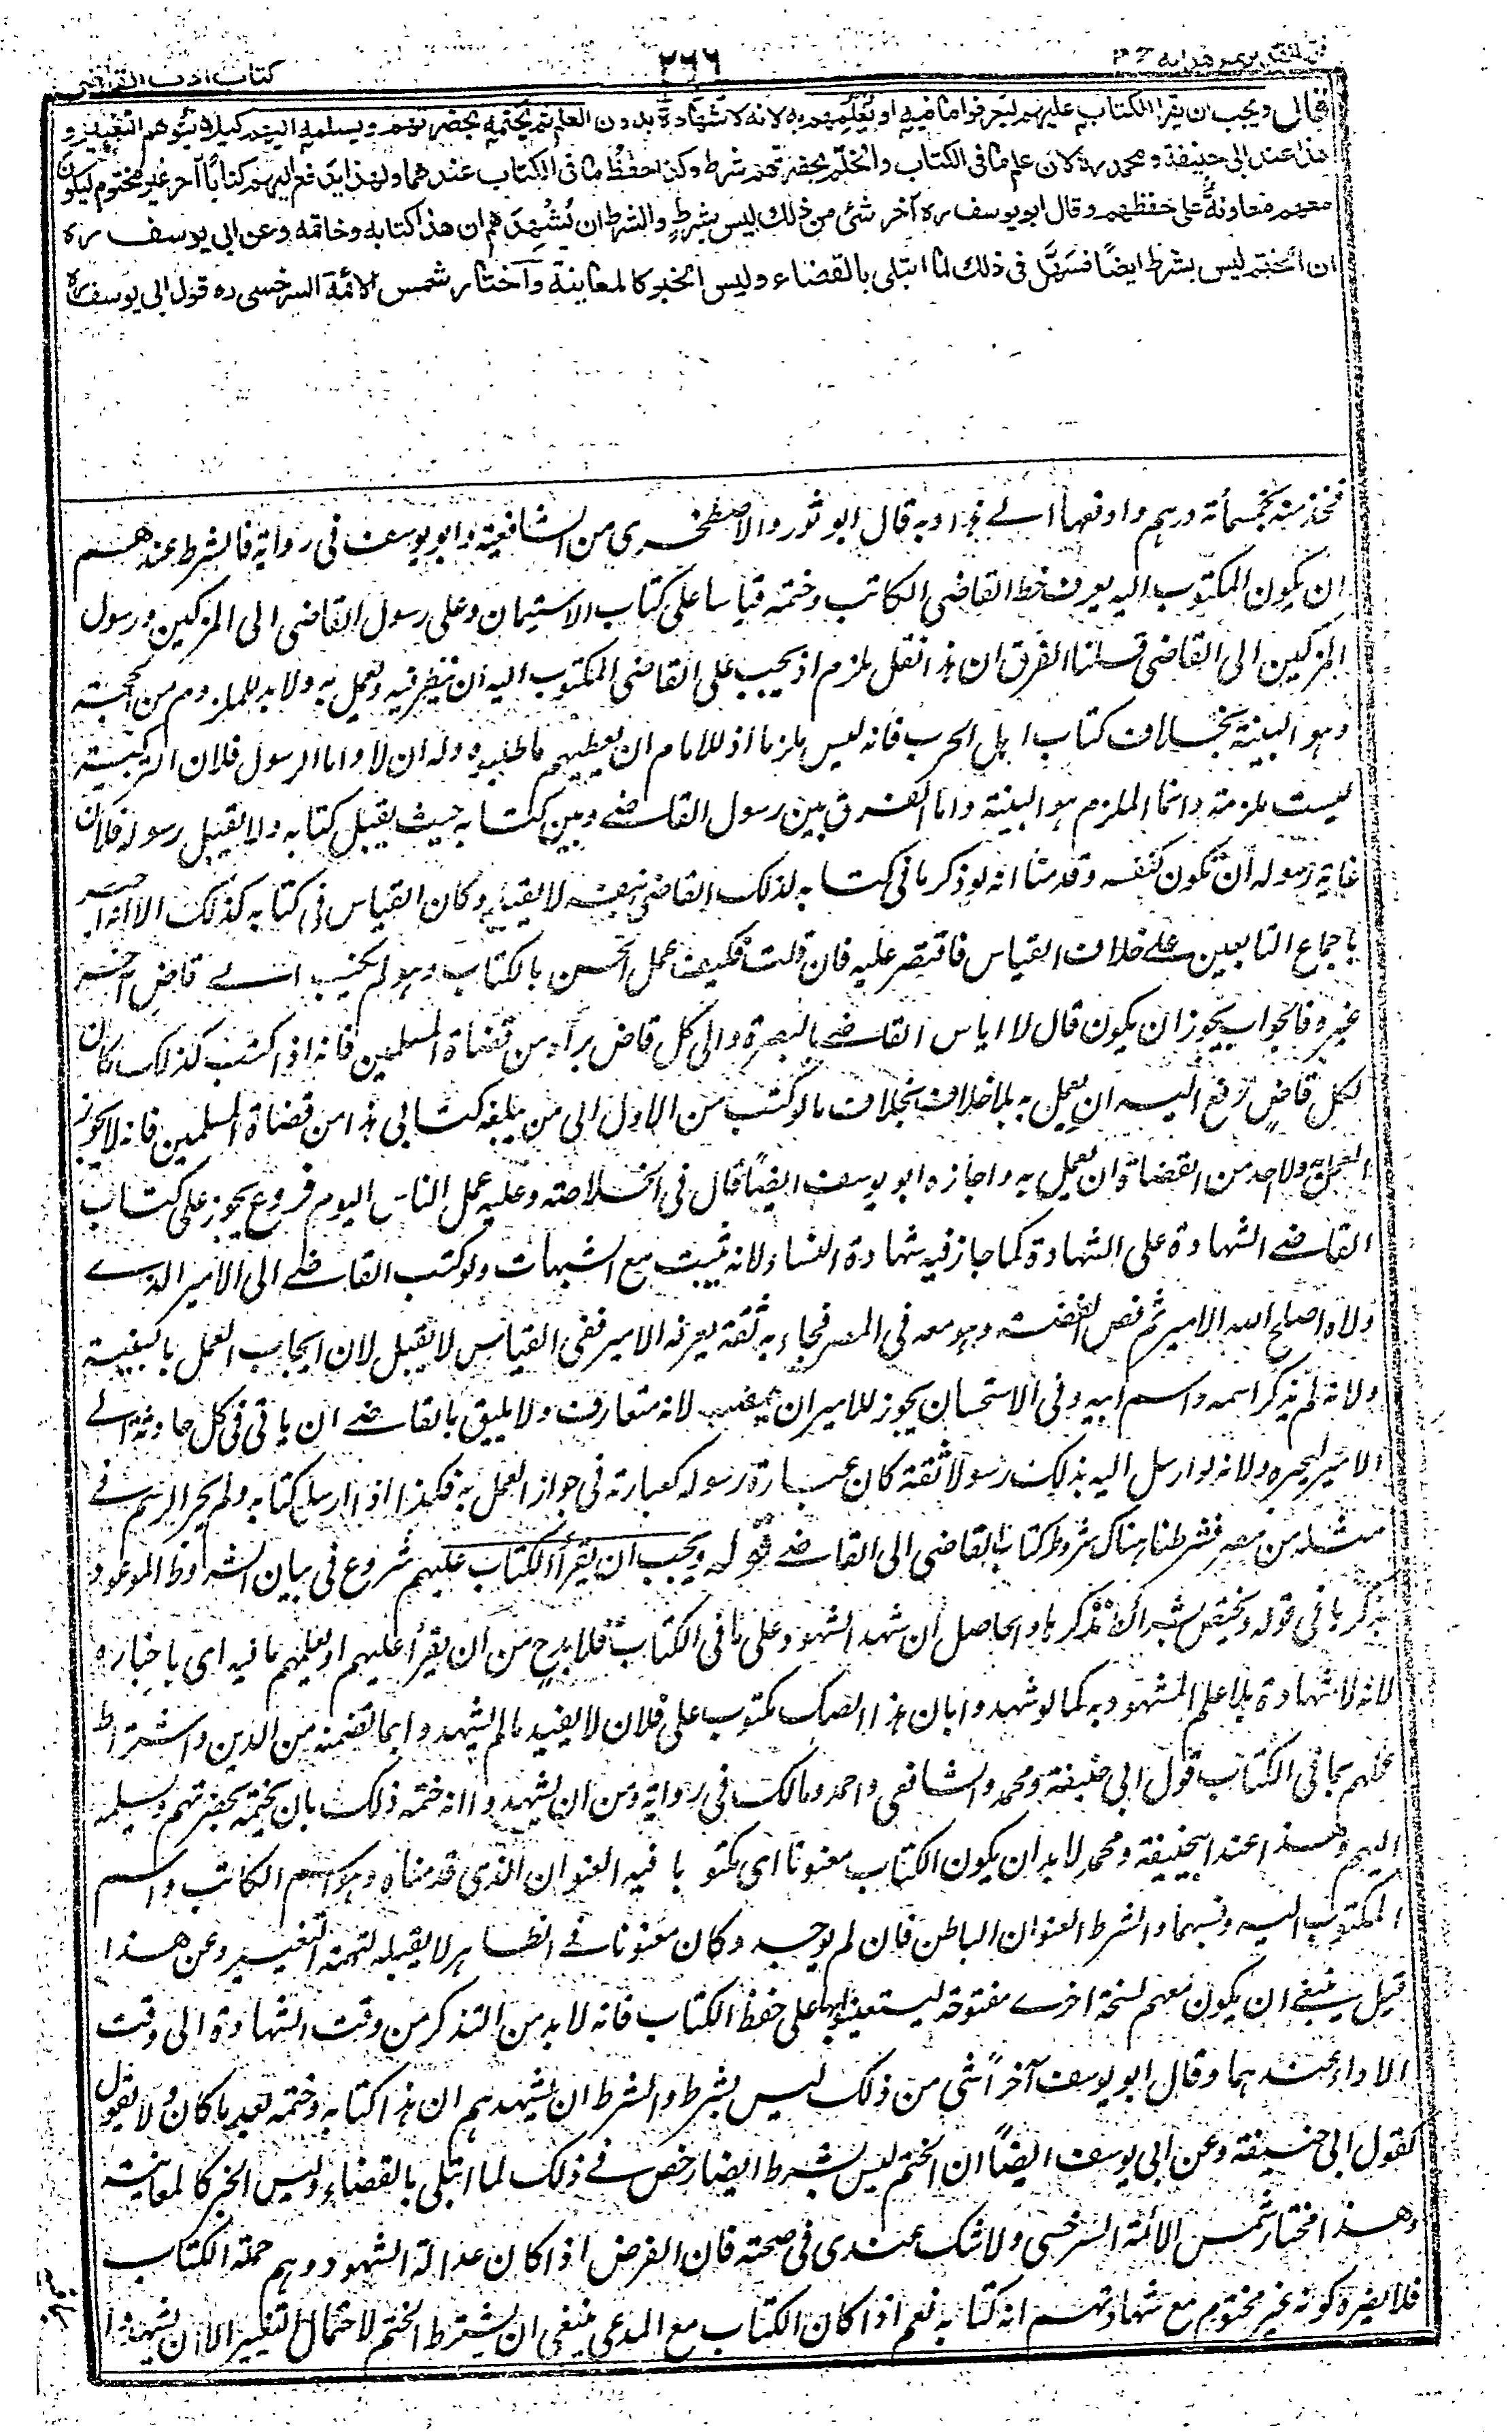 كتاب ادب القاضي
٢٦٦
فتح القدير مع هدايه ج ٣
قال ويجب ان يقرأ الكتاب عليهم ليعرفوا ما فيه او يُعْلِمهم به لانه لا شهادة بدون العلم ثم يختمه بحضرتهم ويسلمه اليهم كيلا يتوهم التغيير و
هذا عند ابي حنيفة و محمد ره لان علم ما في الكتاب والختم بحضرتهم شرط وكذا حفظ ما في الكتاب عندهما ولهذا يدفع اليهم كتابًا آخر غير مختوم ليكون
معهم معاونةً على حفظهم وقال ابو يوسف ره آخر شئ من ذلك ليس بشرطٍ والشرط ان يُشْهِدَهم ان هذا كتابه وخاتمه وعن ابي يوسف ره
ان الختم ليس بشرط ايضًا فسَهَّل في ذلك لما ابتلى بالقضاء وليس الخبر كالمعاينة وآختار شمس الائمة السرخسي ره قول ابي يوسف ره
فخذ منه بخمسمأة درهم وادفعها الى هذا وبه قال ابو ثور والاصطخري من الشافعية وابو يوسف في رواية فالشرط عندهم
ان يكون المكتوب اليه يعرف خط القاضي الكاتب وختمه قياسا على كتاب الاستيمان وعلى رسول القاضي الى المزكين ورسول
المزكين الى القاضي قلنا الفرق ان هذا نقل ملزم اذ يجب على القاضي المكتوب اليه ان ينظر فيه ويعمل به ولا بد للملزوم من الحجة
وهو البينة بخلاف كتاب اهل الحرب فانه ليس ملزما اذ للامام ان يعطيهم ما طلبوه وله ان لا واما الرسول فلان التزكية
ليست ملزمة وانما الملزم هو البينة واما الفرق بين رسول القاضي وبين كتابه حيث يقبل كتابه ولا يقبل رسوله فلان
غاية رسوله ان تكون كنفسه وقدمنا انه لو ذكر ما في كتابه لذلك القاضي بنفسه لا يقبله وكان القياس في كتابه كذلك الا انه اجيز
باجماع التابعين على خلاف القياس فاقتصر عليه فان قلت فكيف عمل الحسن بالكتاب وهو لم يكتب الى قاضٍ آخر
غيره فالجواب يجوز ان يكون قال لا اياس القاضي بالبصرة والى كل قاض يراه من قضاة المسلمين فانه اذا كتب كذلك كان
لكل قاضٍ رفع اليه ان يعمل به بلا خلاف بخلاف ما لو كتب من الاول الى من يبلغه كتابي هذا من قضاة المسلمين فانه لا يجوز
العمل به ولاحد من القضاة ان يعمل به واجازه ابو يوسف ايضًا قال في الخلاصة وعليه عمل الناس اليوم فروع يجوز على كتاب
القاضي الشهادة على الشهادة كما جاز فيه شهادة النساء لانه يثبت مع الشبهات ولو كتب القاضي الى الامير الذي
ولاه اصلح الله الامير ثم قص القصة وهو معه في المصر فجاء به ثقة يعرفه الامير ففي القياس لا يقبل لان ايجاب العمل بالبينة
ولانه لم يذكر اسمه واسم ابيه وفي الاستحسان يجوز للامير ان يمضيه لانه متعارف ولا يليق بالقاضي ان ياتي في كل حادثة الى
الامير ليخبره ولانه لو ارسل اليه بذلك رسولا ثقة كان عبارة رسوله كعبارته في جواز العمل به فكذا اذا ارسل كتابه ولم يجر الرسم في
مثله من مصر فشرطنا هناك شروط كتاب القاضي الى القاضي قوله ويجب ان يقرأ الكتاب عليهم شروع في بيان الشروط الموعود
بذكرها في قوله ويختص بشرائط نذكرها والحاصل ان شهد الشهود على ما في الكتاب فلا بدح من ان يقرأ عليهم او يعلمهم ما فيه اى باخباره
لانه لا شهادة بلا علم المشهود به كما لو شهدوا بان هذا الصك مكتوب على فلان لا يفيد ما لم يشهدوا بما تضمنه من الدين واشتراط
علمهم بما في الكتاب قول ابي حنيفة ومحمد والشافعي واحمد ومالك في رواية ومن ان يشهدوا انه ختمه ذلك بان يختمه بحضرتهم ويسلمه
اليهم وهذا عند ابيحنيفة ومحمد لا بد ان يكون الكتاب معنونا اى مكتوبا فيه العنوان الذى قدمناه وهو اسم الكاتب واسم
المكتوب اليه ونسبهما والشرط العنوان الباطن فان لم يوجد وكان معنونا في الظاهر لا يقبله لتهمة التغيير وعن هذا
قيل ينبغي ان يكون معهم نسخة اخرى مفتوحة ليستعينوا بها على حفظ الكتاب فانه لا بد من التذكر من وقت الشهادة الى وقت
الاداء عندهما وقال ابو يوسف آخرًا شئ من ذلك ليس بشرط والشرط ان يشهدهم ان هذا كتابه وختمه بعد ما كان ولا يقول
كقول ابي حنيفة وعن ابي يوسف ايضًا ان الختم ليس بشرط ايضا رخص في ذلك لما ابتلى بالقضاء وليس الخبر كالمعاينة
وهذا مختار شمس الائمة السرخسي ولا شك عندي في صحته فان الفرض اذا كان عدالة الشهود وهم حملة الكتاب
فلا يضره كونه غير مختوم مع شهادتهم انه كتابه نعم اذا كان الكتاب مع المدعى ينبغى ان يشترط الختم لاحتمال التغيير الا ان يشهدوا